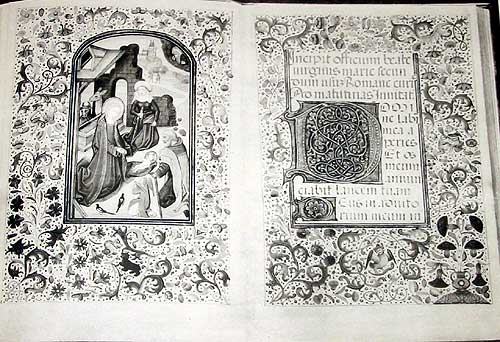 Incipit officium beate
virginis marie secun
dum usū Romane curi
Ad matutinas
DOMI
ne labi
mea a
peries
Et os
meum
ciabit laudem tuam
Deus in adiuto
rium meum in